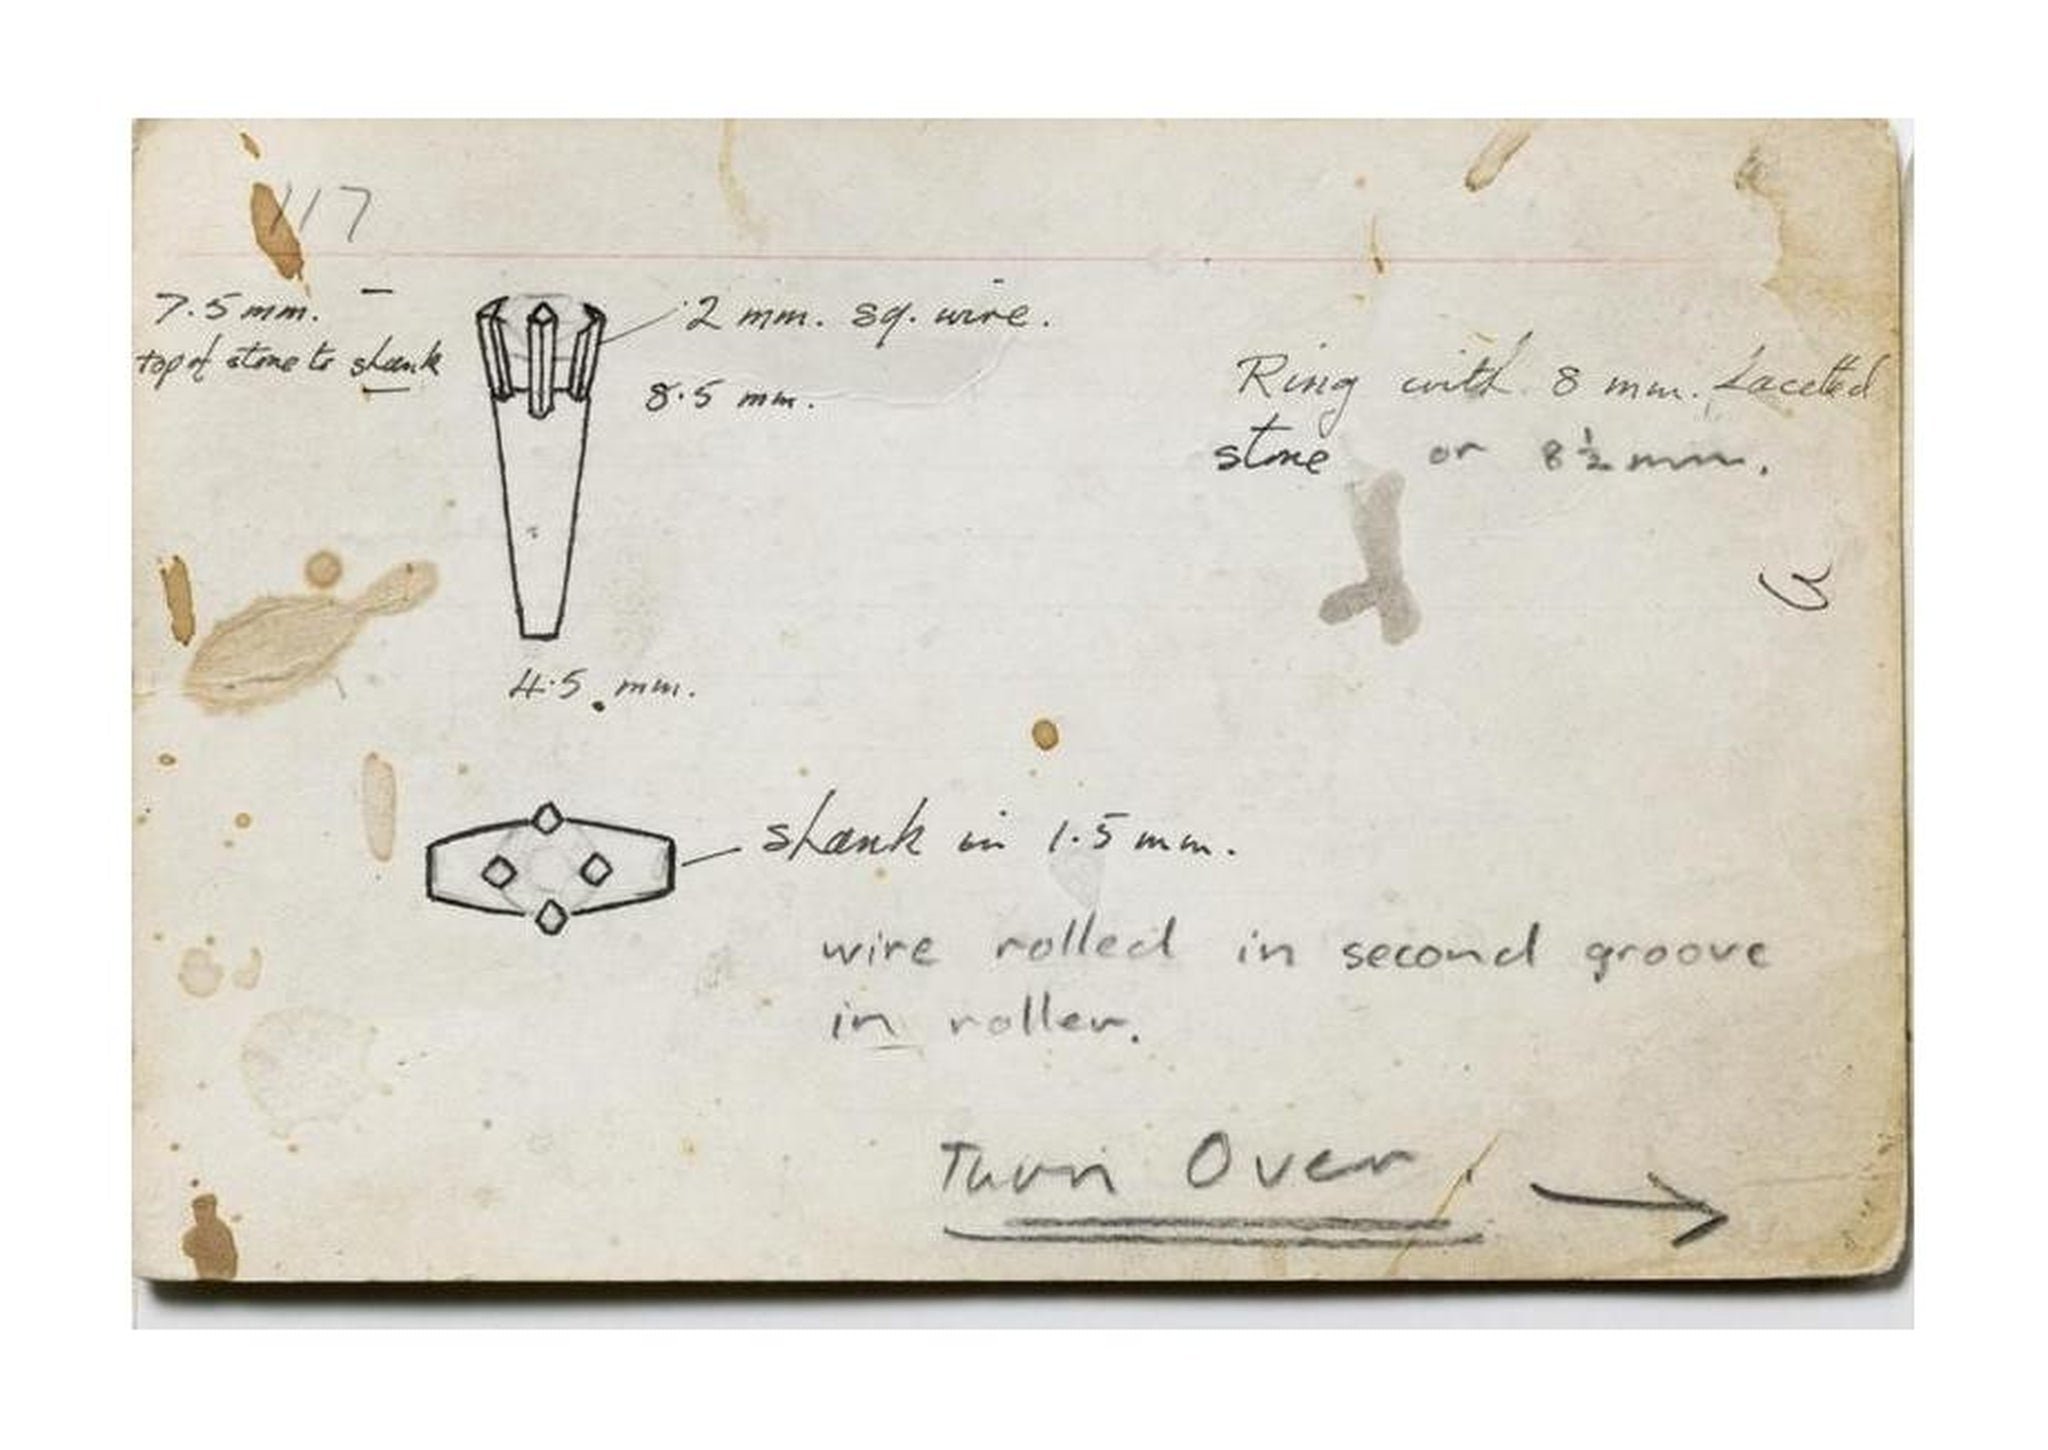 117
7.5 mm.
top of stone to shank
2 mm. sq. wire.
8.5 mm.
Ring with 8 mm. faceted
stone or 8½ mm.
4.5 mm.
shank in 1.5 mm.
wire rolled in second groove
in roller.
Turn Over